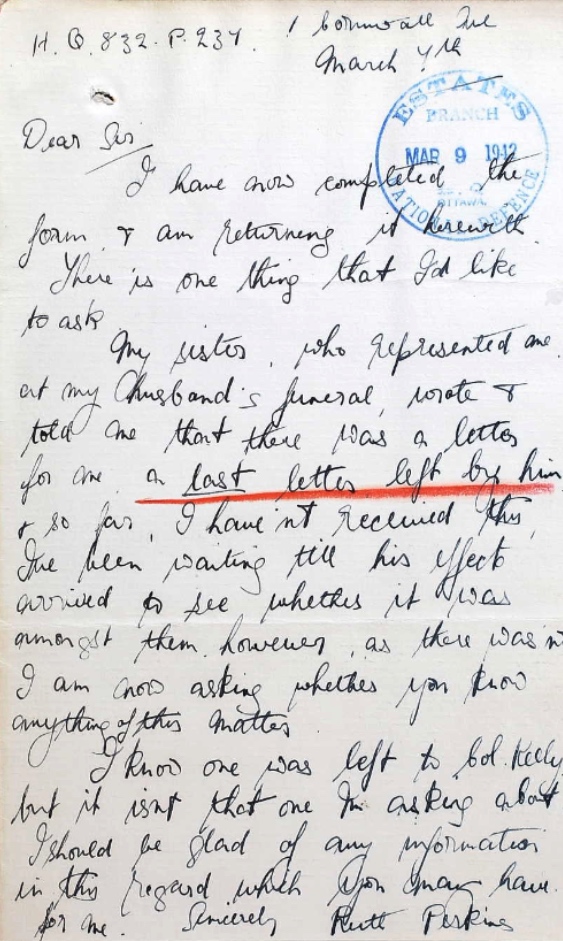 H.Q. 832. P. 237.
1 Cornwall Ave
March 7th
ESTATES
BRANCH
MAR 9 1942
OTTAWA.
NATIONAL DEFENCE
Dear Sir
I have now completed the
form, & am returning it herewith.
There is one thing that I'd like
to ask
My sister, who represented me
at my husband's funeral, wrote &
told me that there was a letter
for me, a last letter left by him
& so far, I have'nt received this,
I've been waiting till his effects
arrived to see whether it was
amongst them, however, as there was n't
I am now asking whether you know
anything of this matter.
I know one was left to Col. Kelly,
but it isnt that one I'm asking about
I should be glad of any information
in this regard which you may have.
for me. Sincerely Ruth Perkins